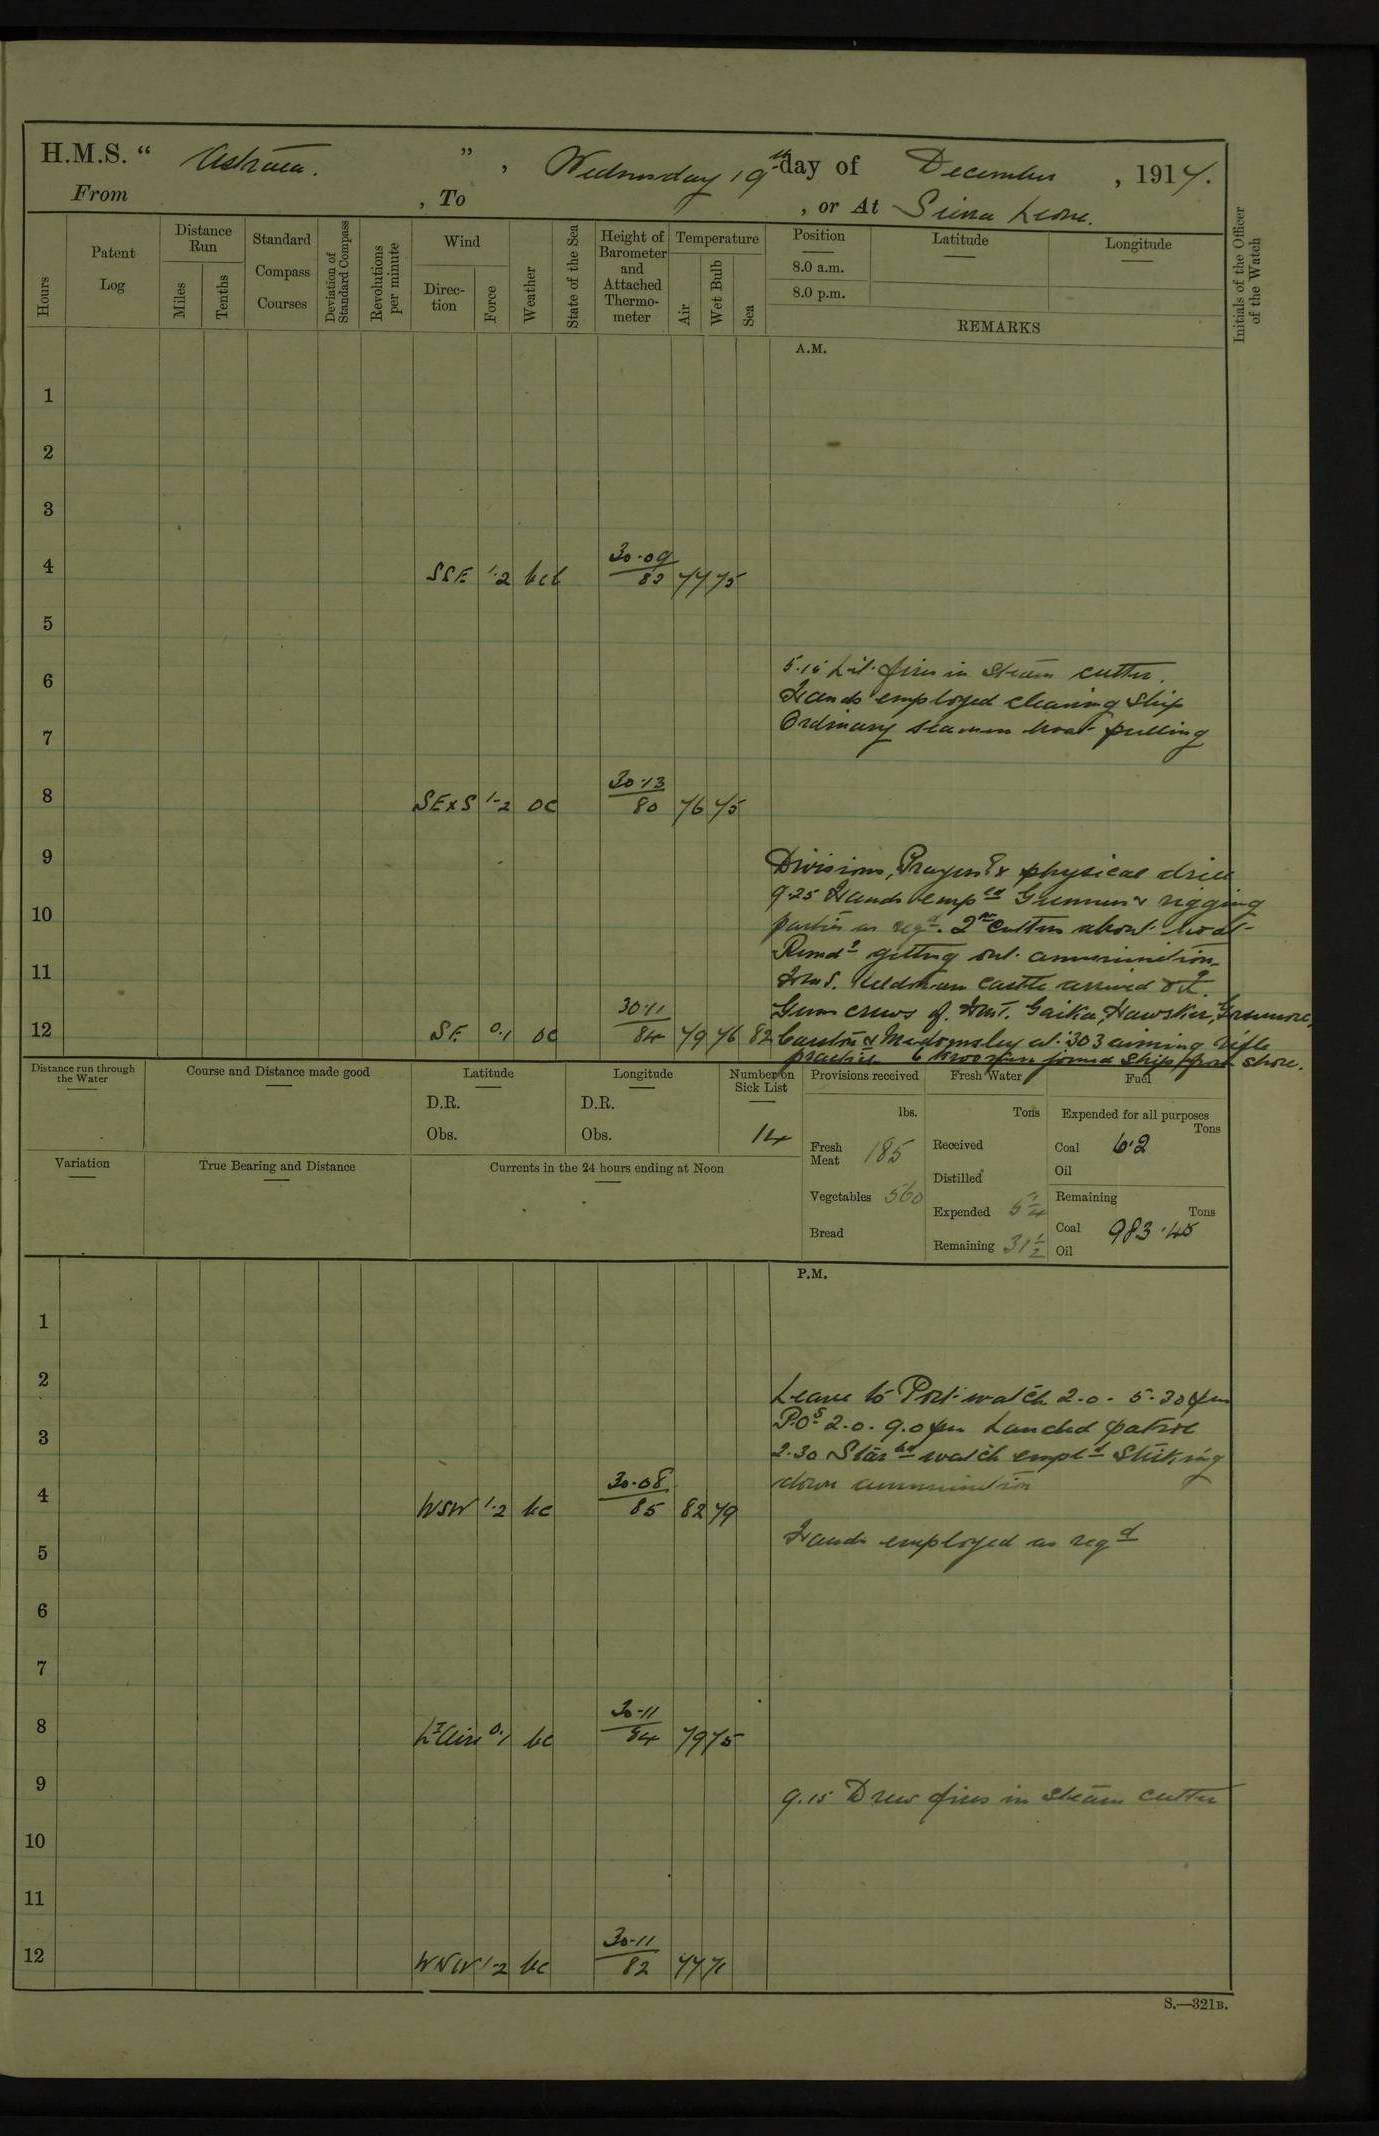 H.M.S. " Astraea. " , Wednesday 19th day of December , 1917.
From , To , or At Sierra Leone.
Hours
Patent Log
Distance Run
Miles
Tenths
Standard Compass Courses
Deviation of Standard Compass
Revolutions per minute
Wind
Direction
Force
Weather
State of the Sea
Height of Barometer and Attached Thermometer
Temperature
Air
Wet Bulb
Sea
Position
8.0 a.m.
8.0 p.m.
Latitude
Longitude
REMARKS
Initials of the Officer of the Watch
A.M.
1
2
3
4 SSE 1-2 bcl 30·09 82 77 75
5
5.15 Lit fires in steam cutter.
6
Hands employed cleaning ship
Ordinary seamen boat pulling
7
8 SExS 1-2 oc 30·13 80 76 75
9
Divisions, Prayers & physical drill
9.25 Hands empd Gunner's rigging
10
parties as reqd. 2nd cutters about boat
Remdr getting out ammunition
11
H.M.S. Kildonan Castle arrived &
Guns crews of H.M.T. Gaika, Hawsker, Grasmere,
12 SE 0.1 oc 30·11 84 79 76 82
& Medomsley at ·303 aiming rifle
practice. 6 Kroomen joined ship from shore.
Distance run through the Water
Course and Distance made good
Latitude
D.R.
Obs.
Longitude
D.R.
Obs.
Number on Sick List
14
Provisions received
lbs.
Fresh Meat 185
Vegetables 560
Bread
Fresh Water
Tons
Received
Distilled
Expended 5 1/4
Remaining 31 1/2
Fuel
Expended for all purposes
Tons
Coal 6·2
Oil
Remaining
Tons
Coal 983·45
Oil
Variation
True Bearing and Distance
Currents in the 24 hours ending at Noon
P.M.
1
2
Leave to Port watch 2.0 - 5.30 pm
3
P.Os 2.0 - 9.0 pm Landed patrol
2.30 Starbd watch empld striking
4 WSW 1-2 bc 30·08 85 82 79
down ammunition
5
Hands employed as reqd
6
7
8 Lt Airs 0.1 bc 30·11 84 79 75
9
9.15 Drew fires in steam cutter
10
11
12 WNW 1-2 bc 30·11 82 77 71
S.—321B.